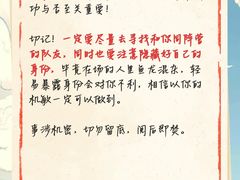 功与否至关重要！
切记！一定要尽量去寻找和你同阵营
的队友，同时也要注意隐藏好自己的
身份，毕竟在场的人里鱼龙混杂，轻
易暴露身份会对你不利，相信以你的
机敏一定可以做到。
事涉机密，切勿留底，阅后即焚。